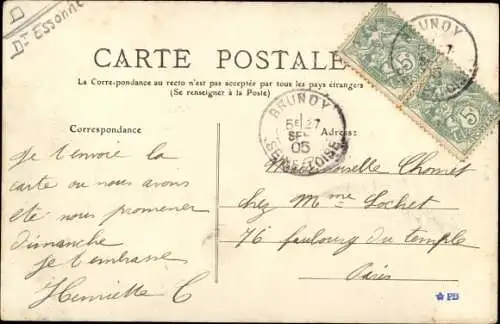 Dt Essonne
CARTE POSTALE
La Correspondance au recto n'est pas acceptée par tous les pays étrangers
(Se renseigner à la Poste)
BRUNOY
BRUNOY
5E 27
SEPT
05
SEINE-ET-OISE
Correspondance
Adresse
Je t'envoie la
carte ou nous avons
été nous promener
dimanche
je t'embrasse
Henriette C
Mademoiselle Chomet
chez Mme Lochet
76 faubourg du temple
Paris
PD